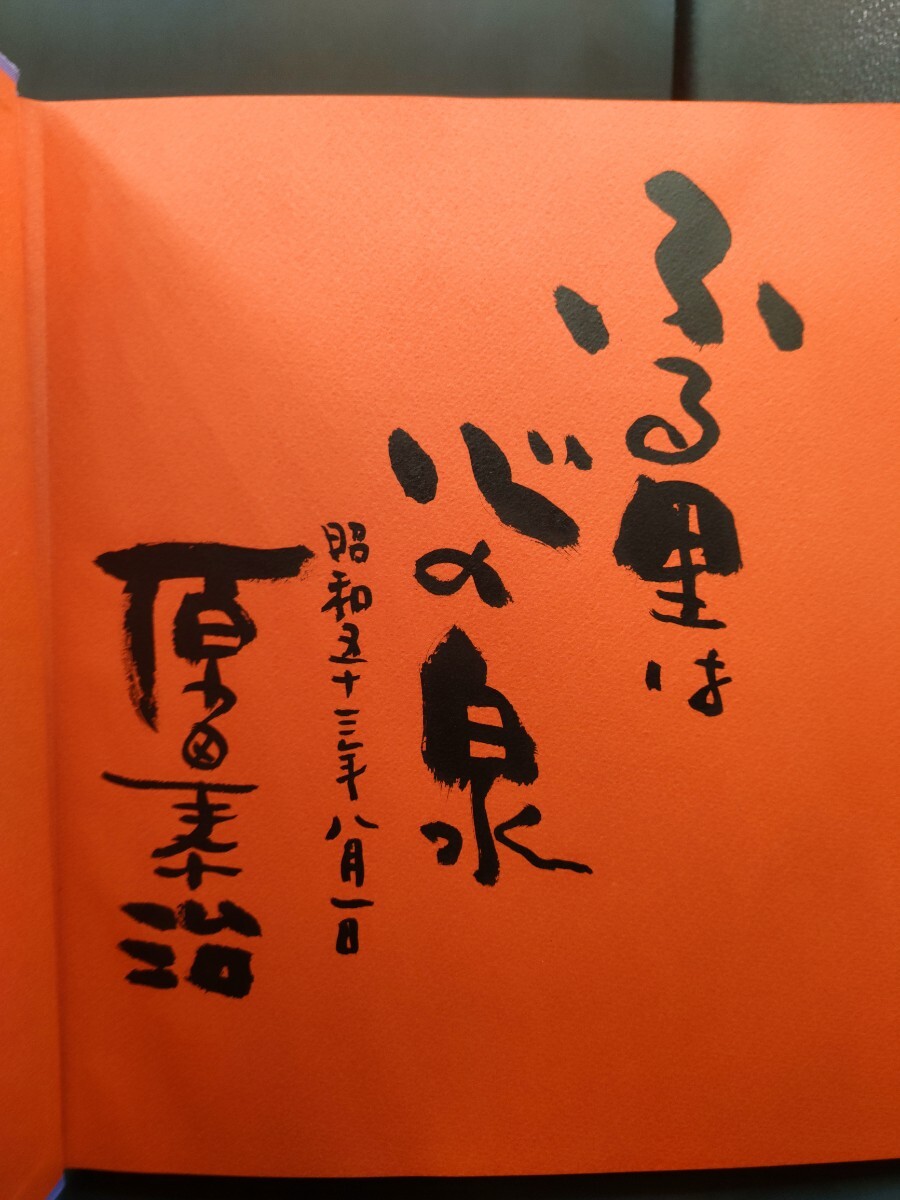 ふる里は
心の泉
昭和五十三年八月一日
原田泰治